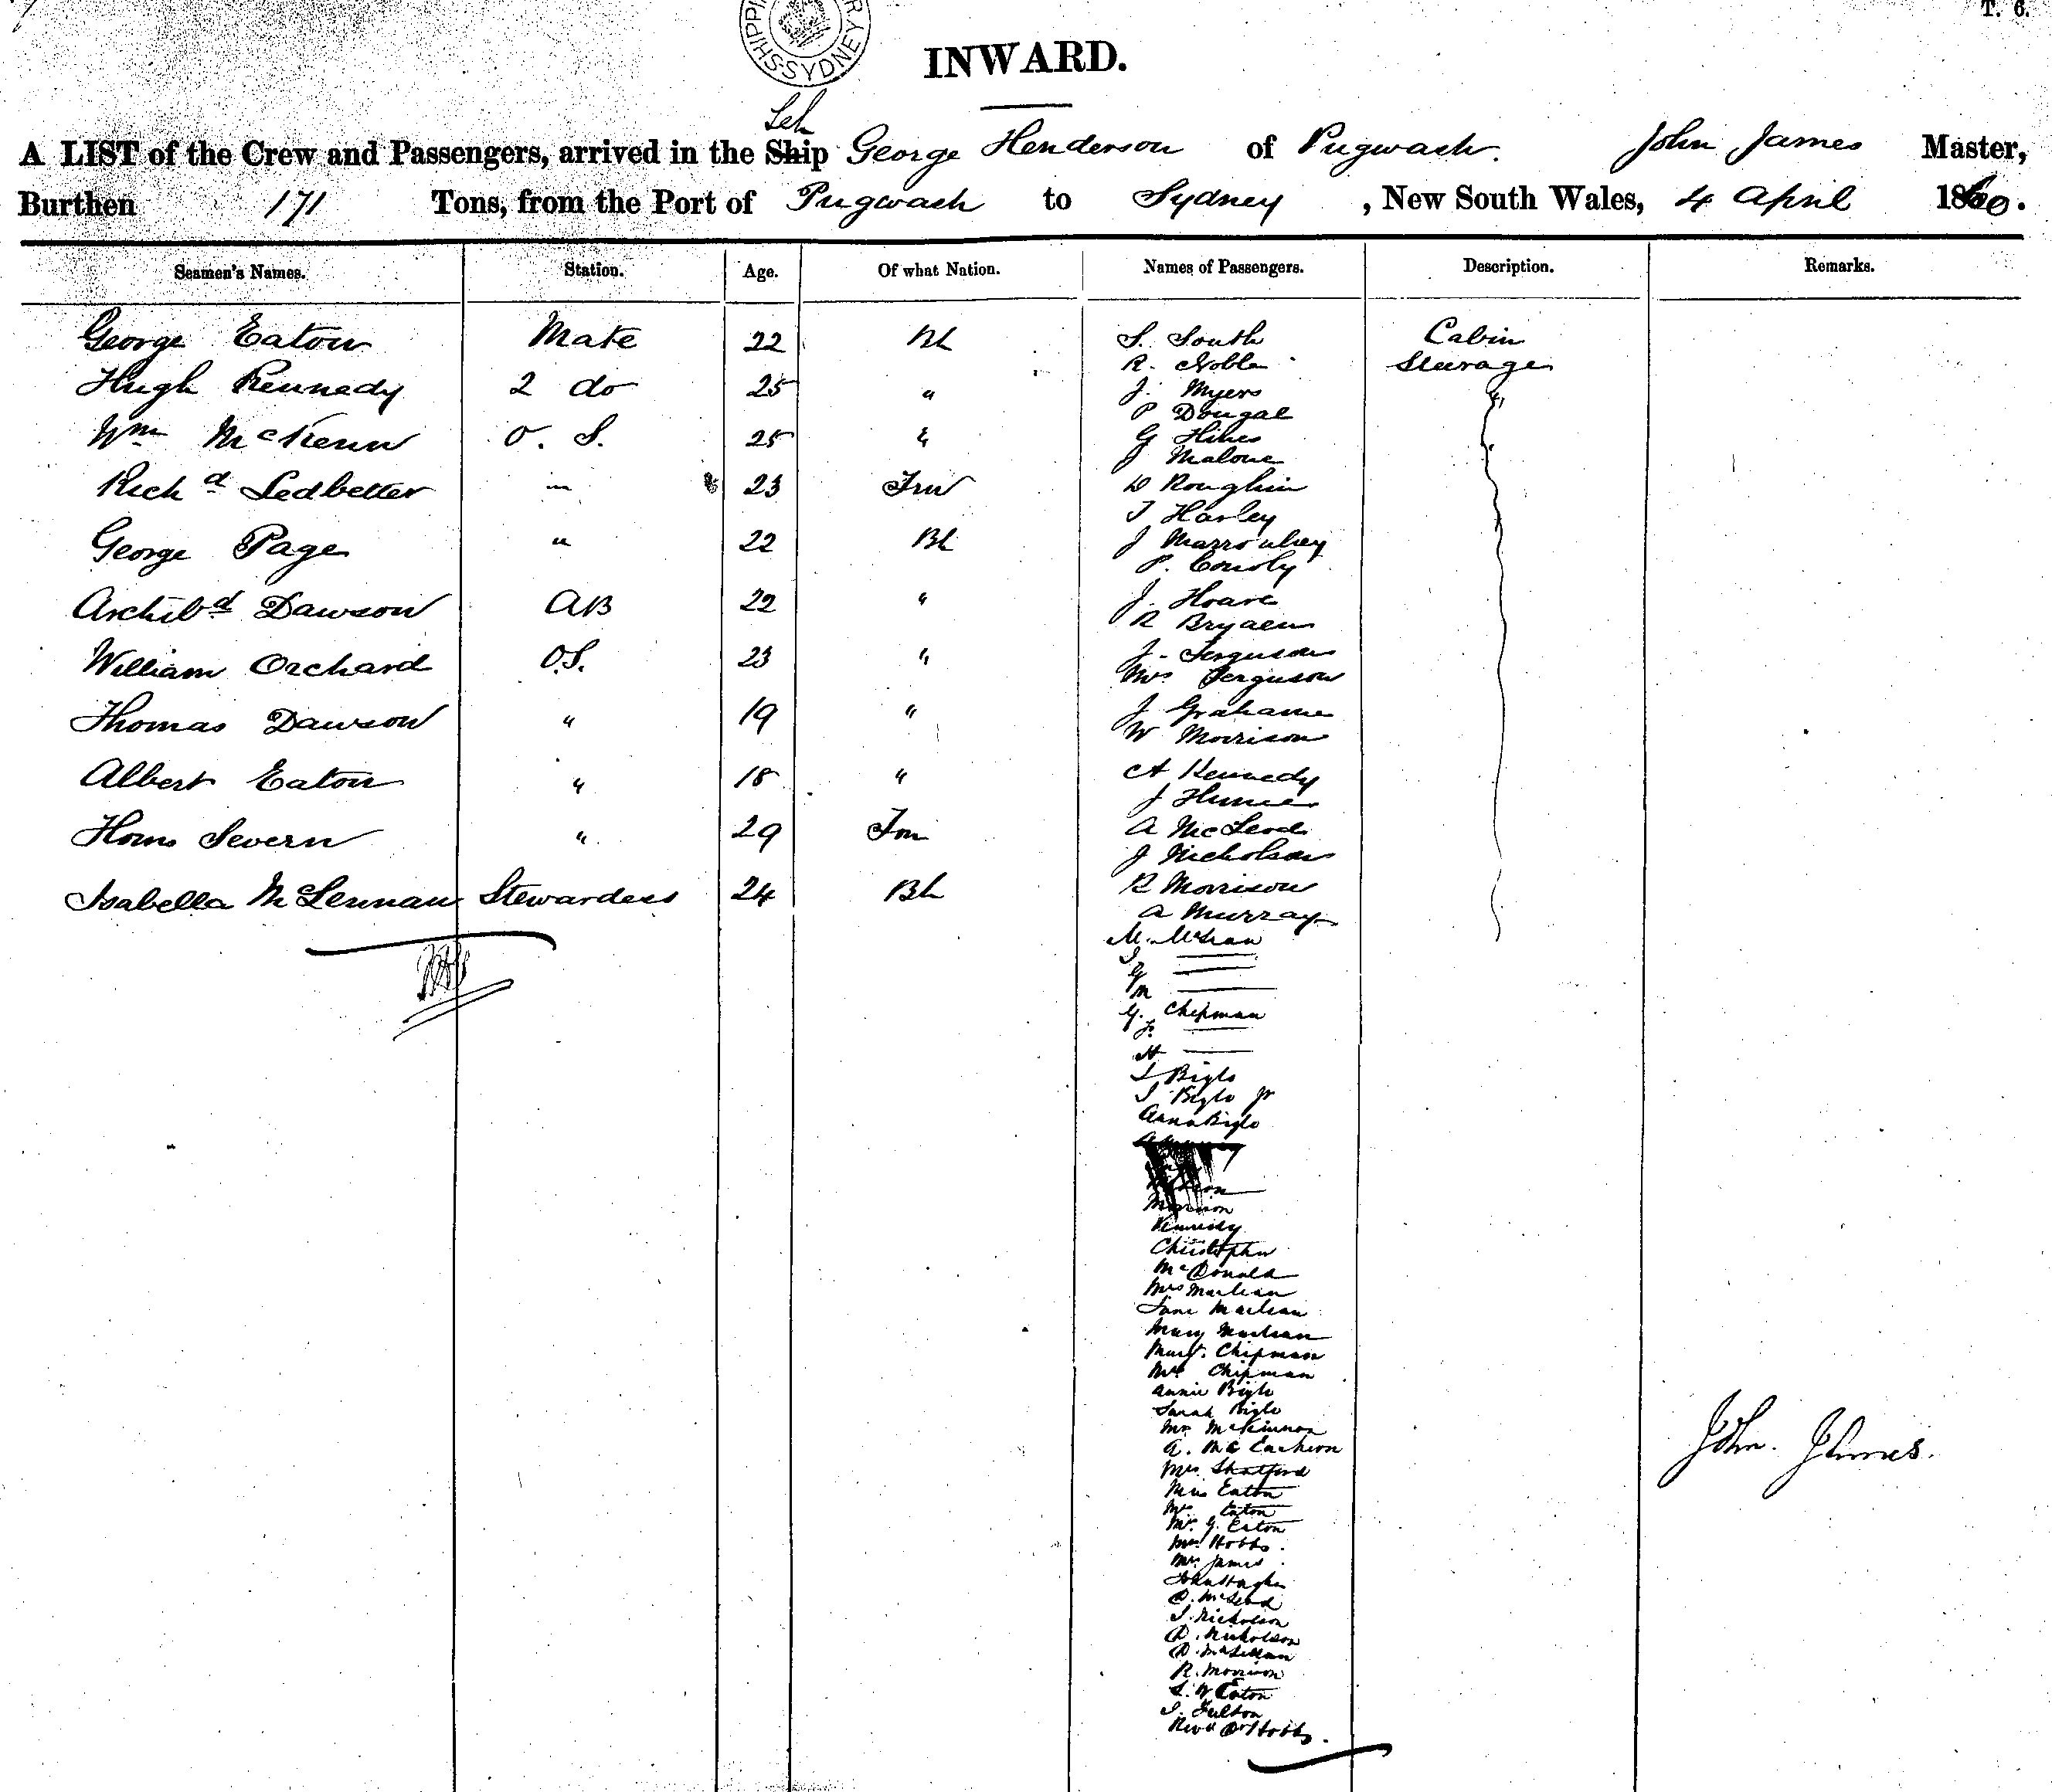 T. 6.
SHIPPI
SYDNEY
INWARD.
Sch
A LIST of the Crew and Passengers, arrived in the Ship George Henderson of Pugwash. John James Master,
Burthen 171 Tons, from the Port of Pugwash to Sydney, New South Wales, 4 April 1860.
Seamen's Names. Station. Age. Of what Nation. Names of Passengers. Description. Remarks.
George Eaton Mate 22 Bh S. South Cabin
R. Noble Steerage
Hugh Kennedy 2 do 25 " J. Myers "
P Dougal
Wm McKenn O. S. 25 " G Hines
J Malone
Richd Ledbetter " 23 D Roughin
T Harley
George Page " 22 Bh J
P. Conoly
Archibd Dawson AB 22 " J. Hoare
R
William Orchard O.S. 23 " J. Ferguson
Mrs Ferguson
Thomas Dawson " 19 " J Grahame
W Morrison
Albert Eaton " 18 " A Kennedy
J Hume
Severn " 29 A McLeod
J Nicholson
Isabella McLennan Stewardess 24 Bh R Morrison
A Murray
M. McLean
J ——
G ——
M ——
G. Chipman
J. ——
H ——
J Biglo
J Biglo Jr
Anna Biglo
Morrison
Kennedy
Christopher
McDonald
Mrs Maclean
Jane Maclean
Mary Maclean
Margt. Chipman
Mrs Chipman
Annie Biglo
Sarah Biglo
Mrs McKinnon
A. McEachern
Mrs Shatford
Miss Eaton
Mrs Eaton
Mr. G. Eaton
Mrs Hobbs.
Mrs James
John
D. McLeod
J. Nicholson
D. Nicholson
D. McLellan
R. Morrison
S. W Eaton
J. Fulton
Revd Dr Hobbs.
John. James.